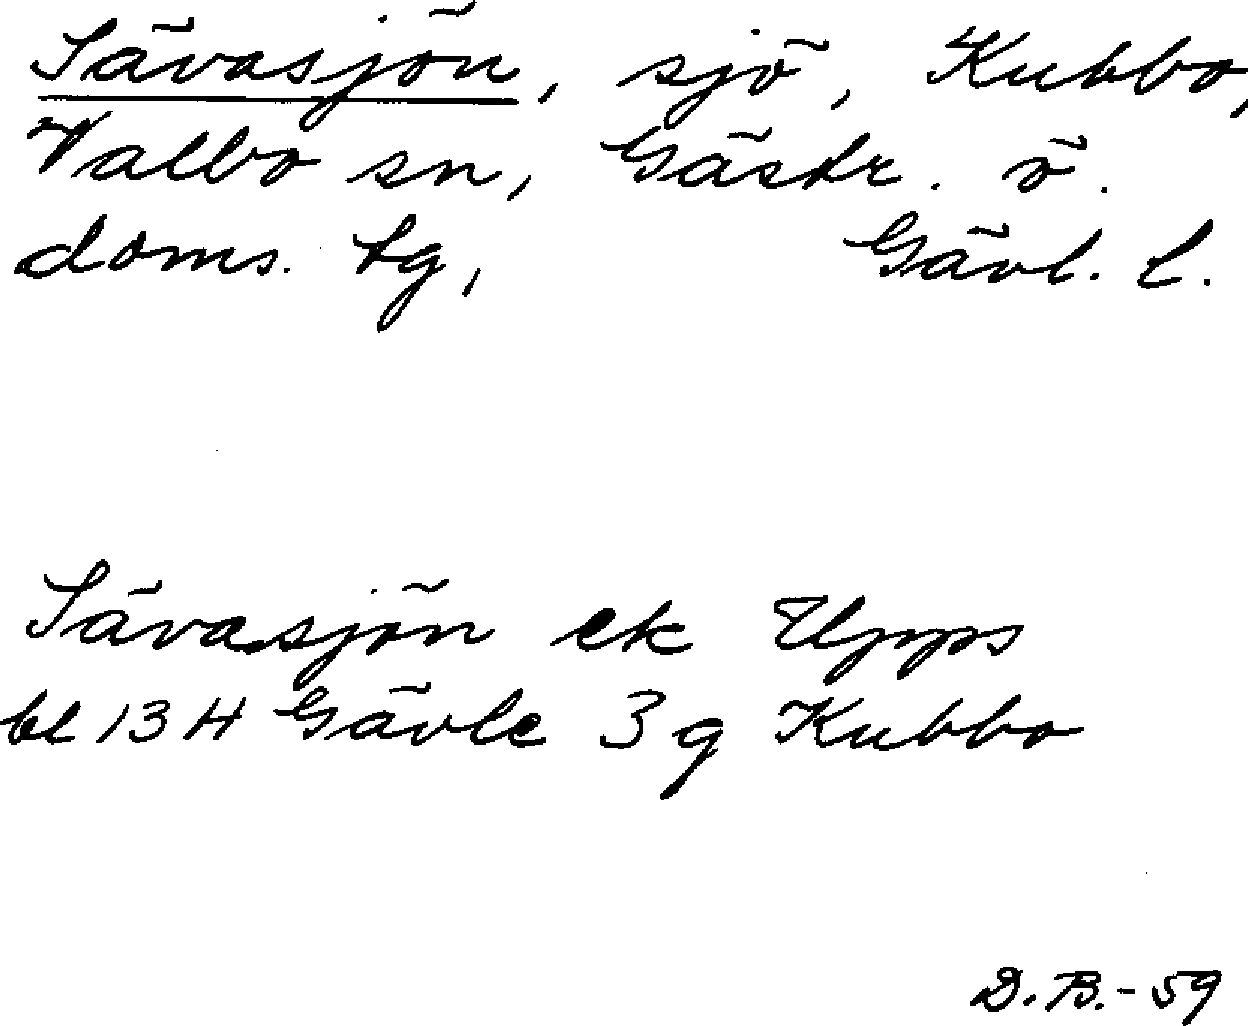 Sävasjön, sjö, Kubbo,
Valbo sn, Gästr. ö.
doms. tg, Gävl. l.
Sävasjön ek Upps
bl 13 H Gävle 3 g Kubbo
D.B.-59